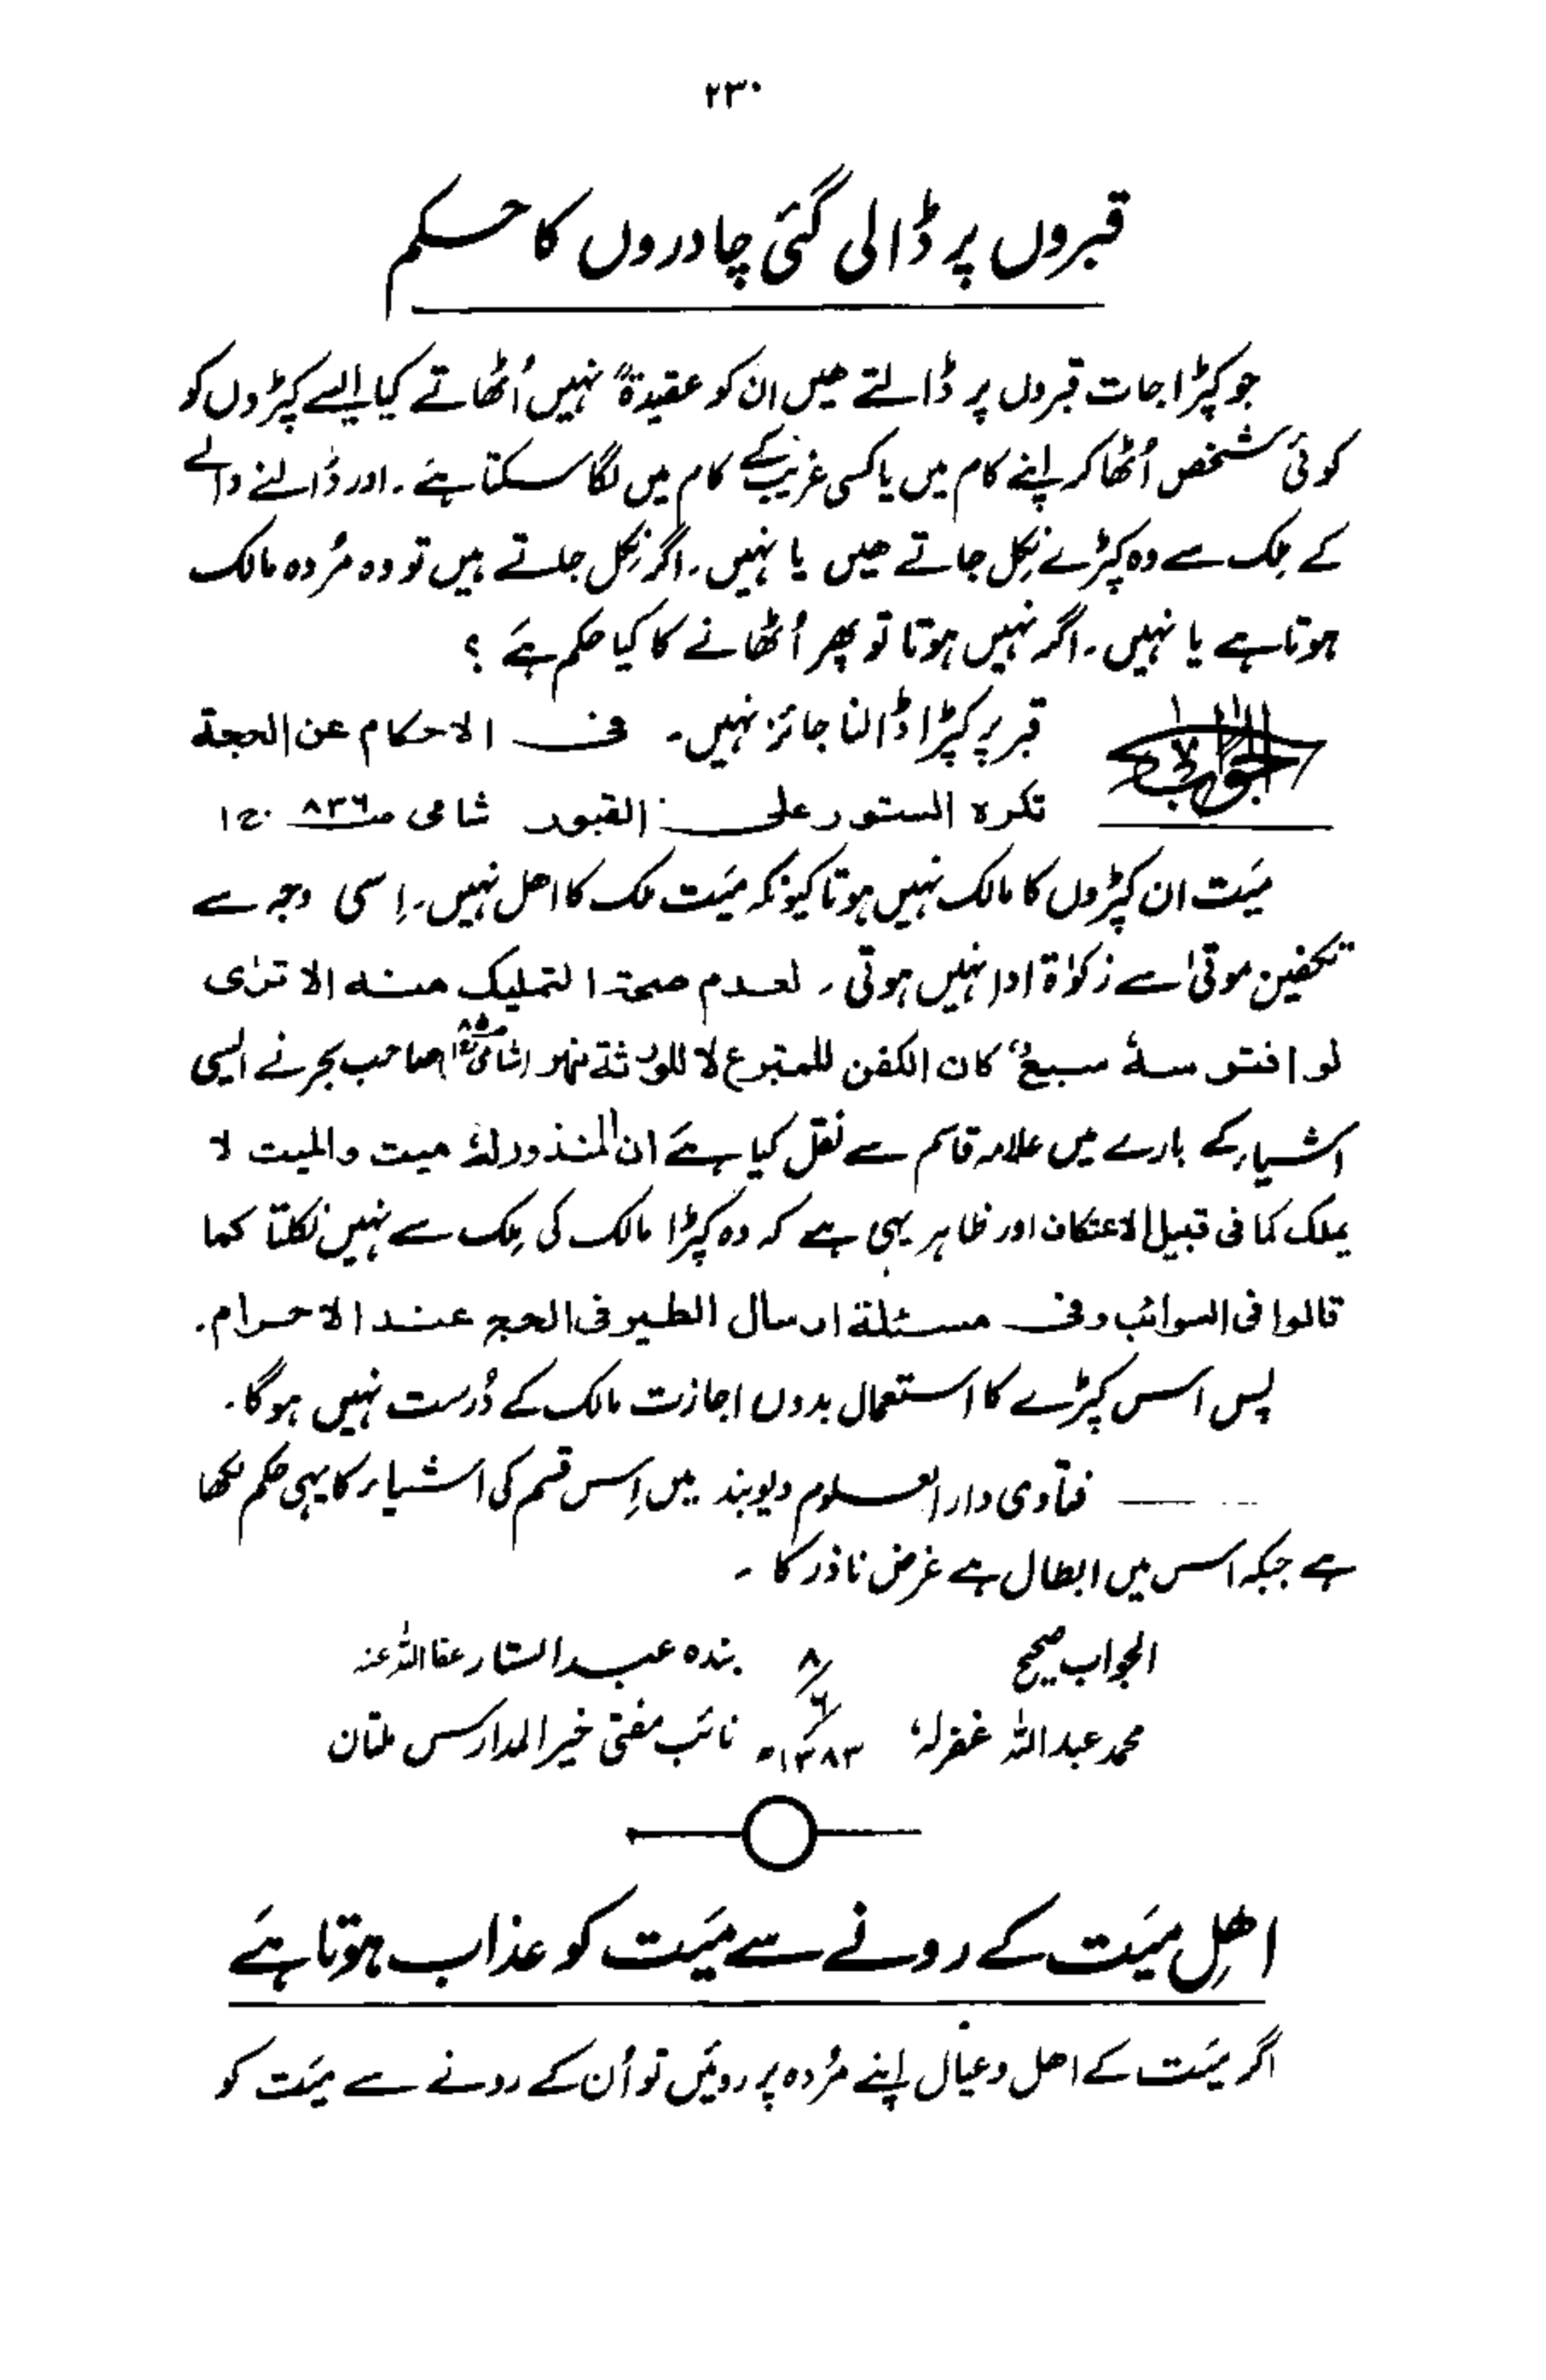 ۲۳۰
قبروں پر ڈالی گئی چادروں کا حکم
جو کپڑا جات قبروں پر ڈالتے ھیں ان کو عقیدۃً نہیں اُٹھاتے کیا ایسے کپڑوں کو
کوئی شخص اُٹھا کر اپنے کام میں یا کسی غریب کے کام میں لگا سکتا ہے۔ اور ڈالنے والے
کے مِلک سے وہ کپڑے نِکل جاتے ھیں یا نہیں۔ اگر نِکل جاتے ہیں تو وہ مُردہ مالک
ہوتا ہے یا نہیں۔ اگر نہیں ہوتا تو پھر اُٹھانے کا کیا حکم ہے ؟
الجواب قبر پر کپڑا ڈالنا جائز نہیں۔ فی الاحکام عن الحجۃ
تکرہ الستور علی القبور شامی ص۸۳۶ ج۱
میّت ان کپڑوں کا مالک نہیں ہوتا کیونکہ میّت ملک کا اھل نہیں۔ اِسی وجہ سے
تکفین موتیٰ سے زکوٰۃ ادا نہیں ہوتی۔ لعدم صحۃ التملیک منہ الا تریٰ
لو افترسہٗ سبعٌ کان الکفن للمتبرع لا للورثۃ نہر (شامی) صاحب بحر نے ایسی
اشیاء کے بارے میں علامہ قاسم سے نقل کیا ہے ان المنذور لہٗ میت والمیت لا
یملک کما فی قبیل الاعتکاف اور ظاہر یہی ہے کہ وہ کپڑا مالک کی مِلک سے نہیں نکلتا کما
قالوا فی السوائب وفی مسئلۃ ارسال الطیر فی الحج عند الاحرام۔
پس اس کپڑے کا استعمال بدوں اجازت مالک کے دُرست نہیں ہوگا۔
فتاوی دار العلوم دیوبند میں اِس قسم کی اشیاء کا یہی حکم لکھا
ہے جبکہ اس میں ابطال ہے غرض ناذر کا۔
الجواب صحیح ۸/۶ بندہ عبد الستار عفا اللہ عنہ
محمد عبد اللہ غفرلہٗ ۱۳۸۳ھ نائب مفتی خیر المدارس ملتان
اھلِ میّت کے رونے سے میّت کو عذاب ہوتا ہے
اگر میّت کے اھل و عیال اپنے مُردہ پر روئیں تو اُن کے رونے سے میّت کو